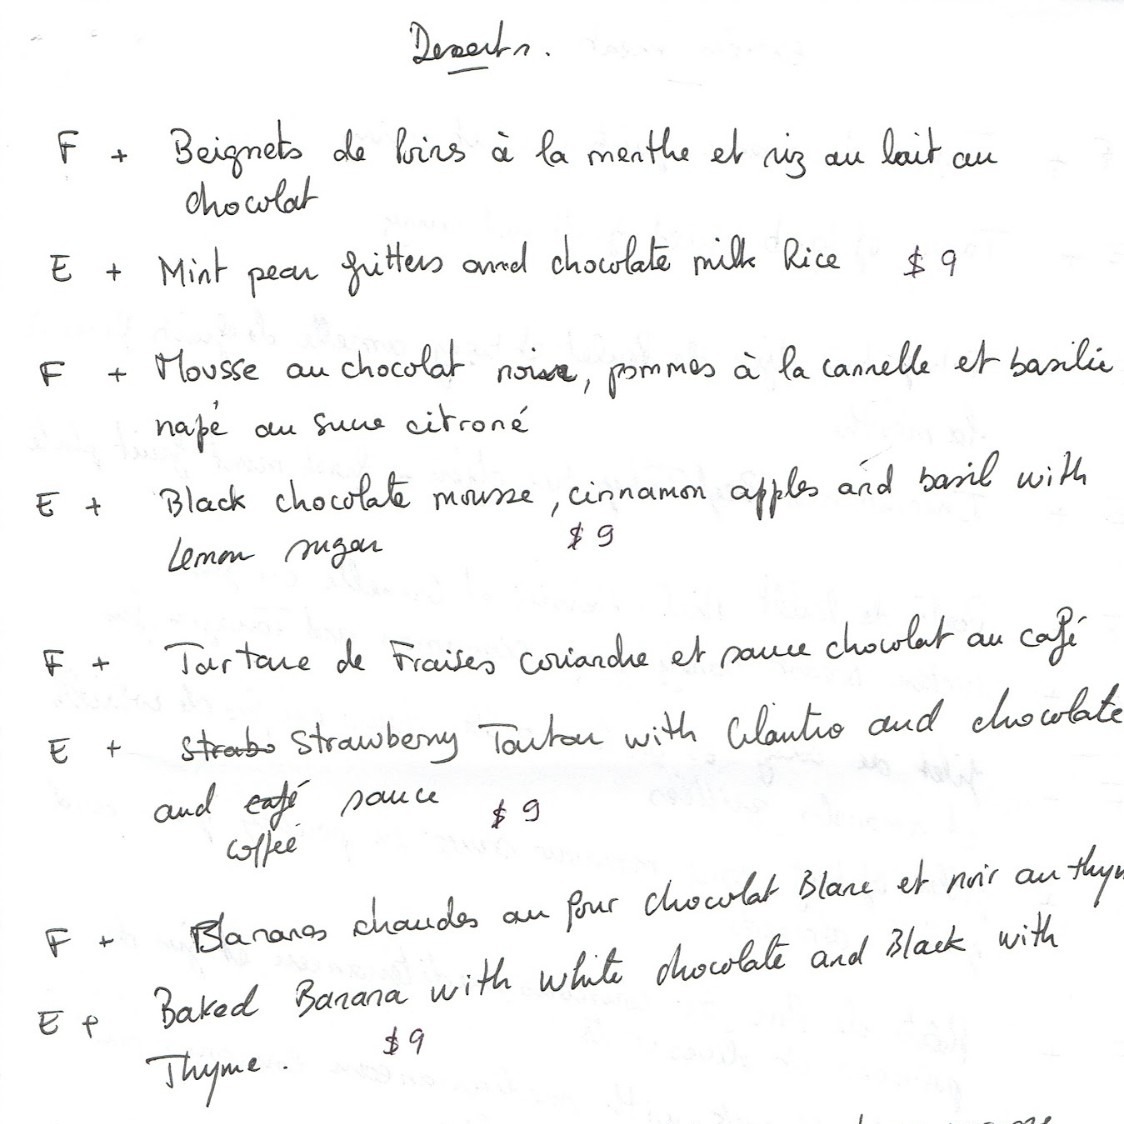 Desserts.
F + Beignets de Poires à la menthe et riz au lait au
chocolat
E + Mint pear fritters and chocolate milk Rice $ 9
F + Mousse au chocolat noire, pommes à la cannelle et basilic
napé au sucre citroné
E + Black chocolate mousse, cinnamon apples and basil with
Lemon sugar $ 9
F + Tartare de Fraises coriandre et sauce chocolat au café
E + Strabo Strawberry Tartar with Cilantro and chocolate
and café sauce $ 9
coffee
F + Bananes chaudes au four chocolat Blanc et noir au thym
E + Baked Banana with white chocolate and Black with
Thyme. $9